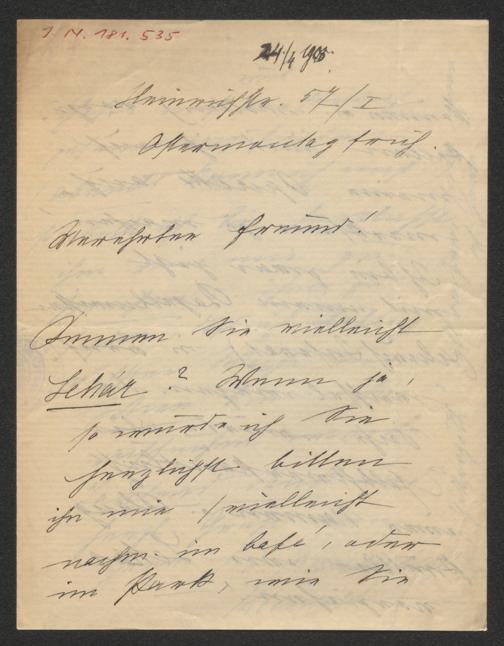 I. N. 181.535
24/4 908.
Heinrichstr. 57/I
Ostermontag früh.
Verehrter Freund!
Kennen Sie vielleicht
Lehár? Wenn ja,
so würde ich Sie
herzlichst bitten
ihn mir (vielleicht
nachm. im Café, oder
im Park, wie Sie